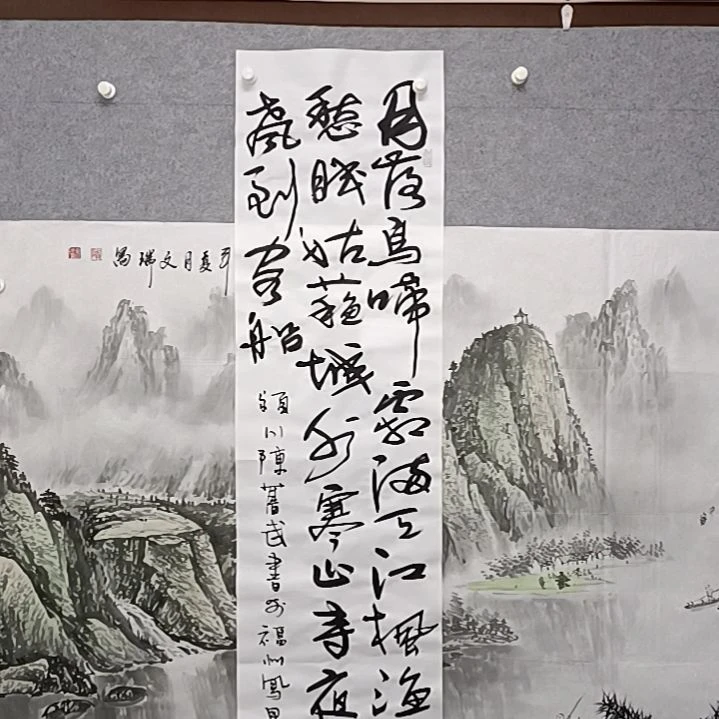 月落烏啼霜滿天江楓漁
愁眠姑蘇城外寒山寺夜
聲到客船
川陳武書於福州鳳
夏月文瑞寫